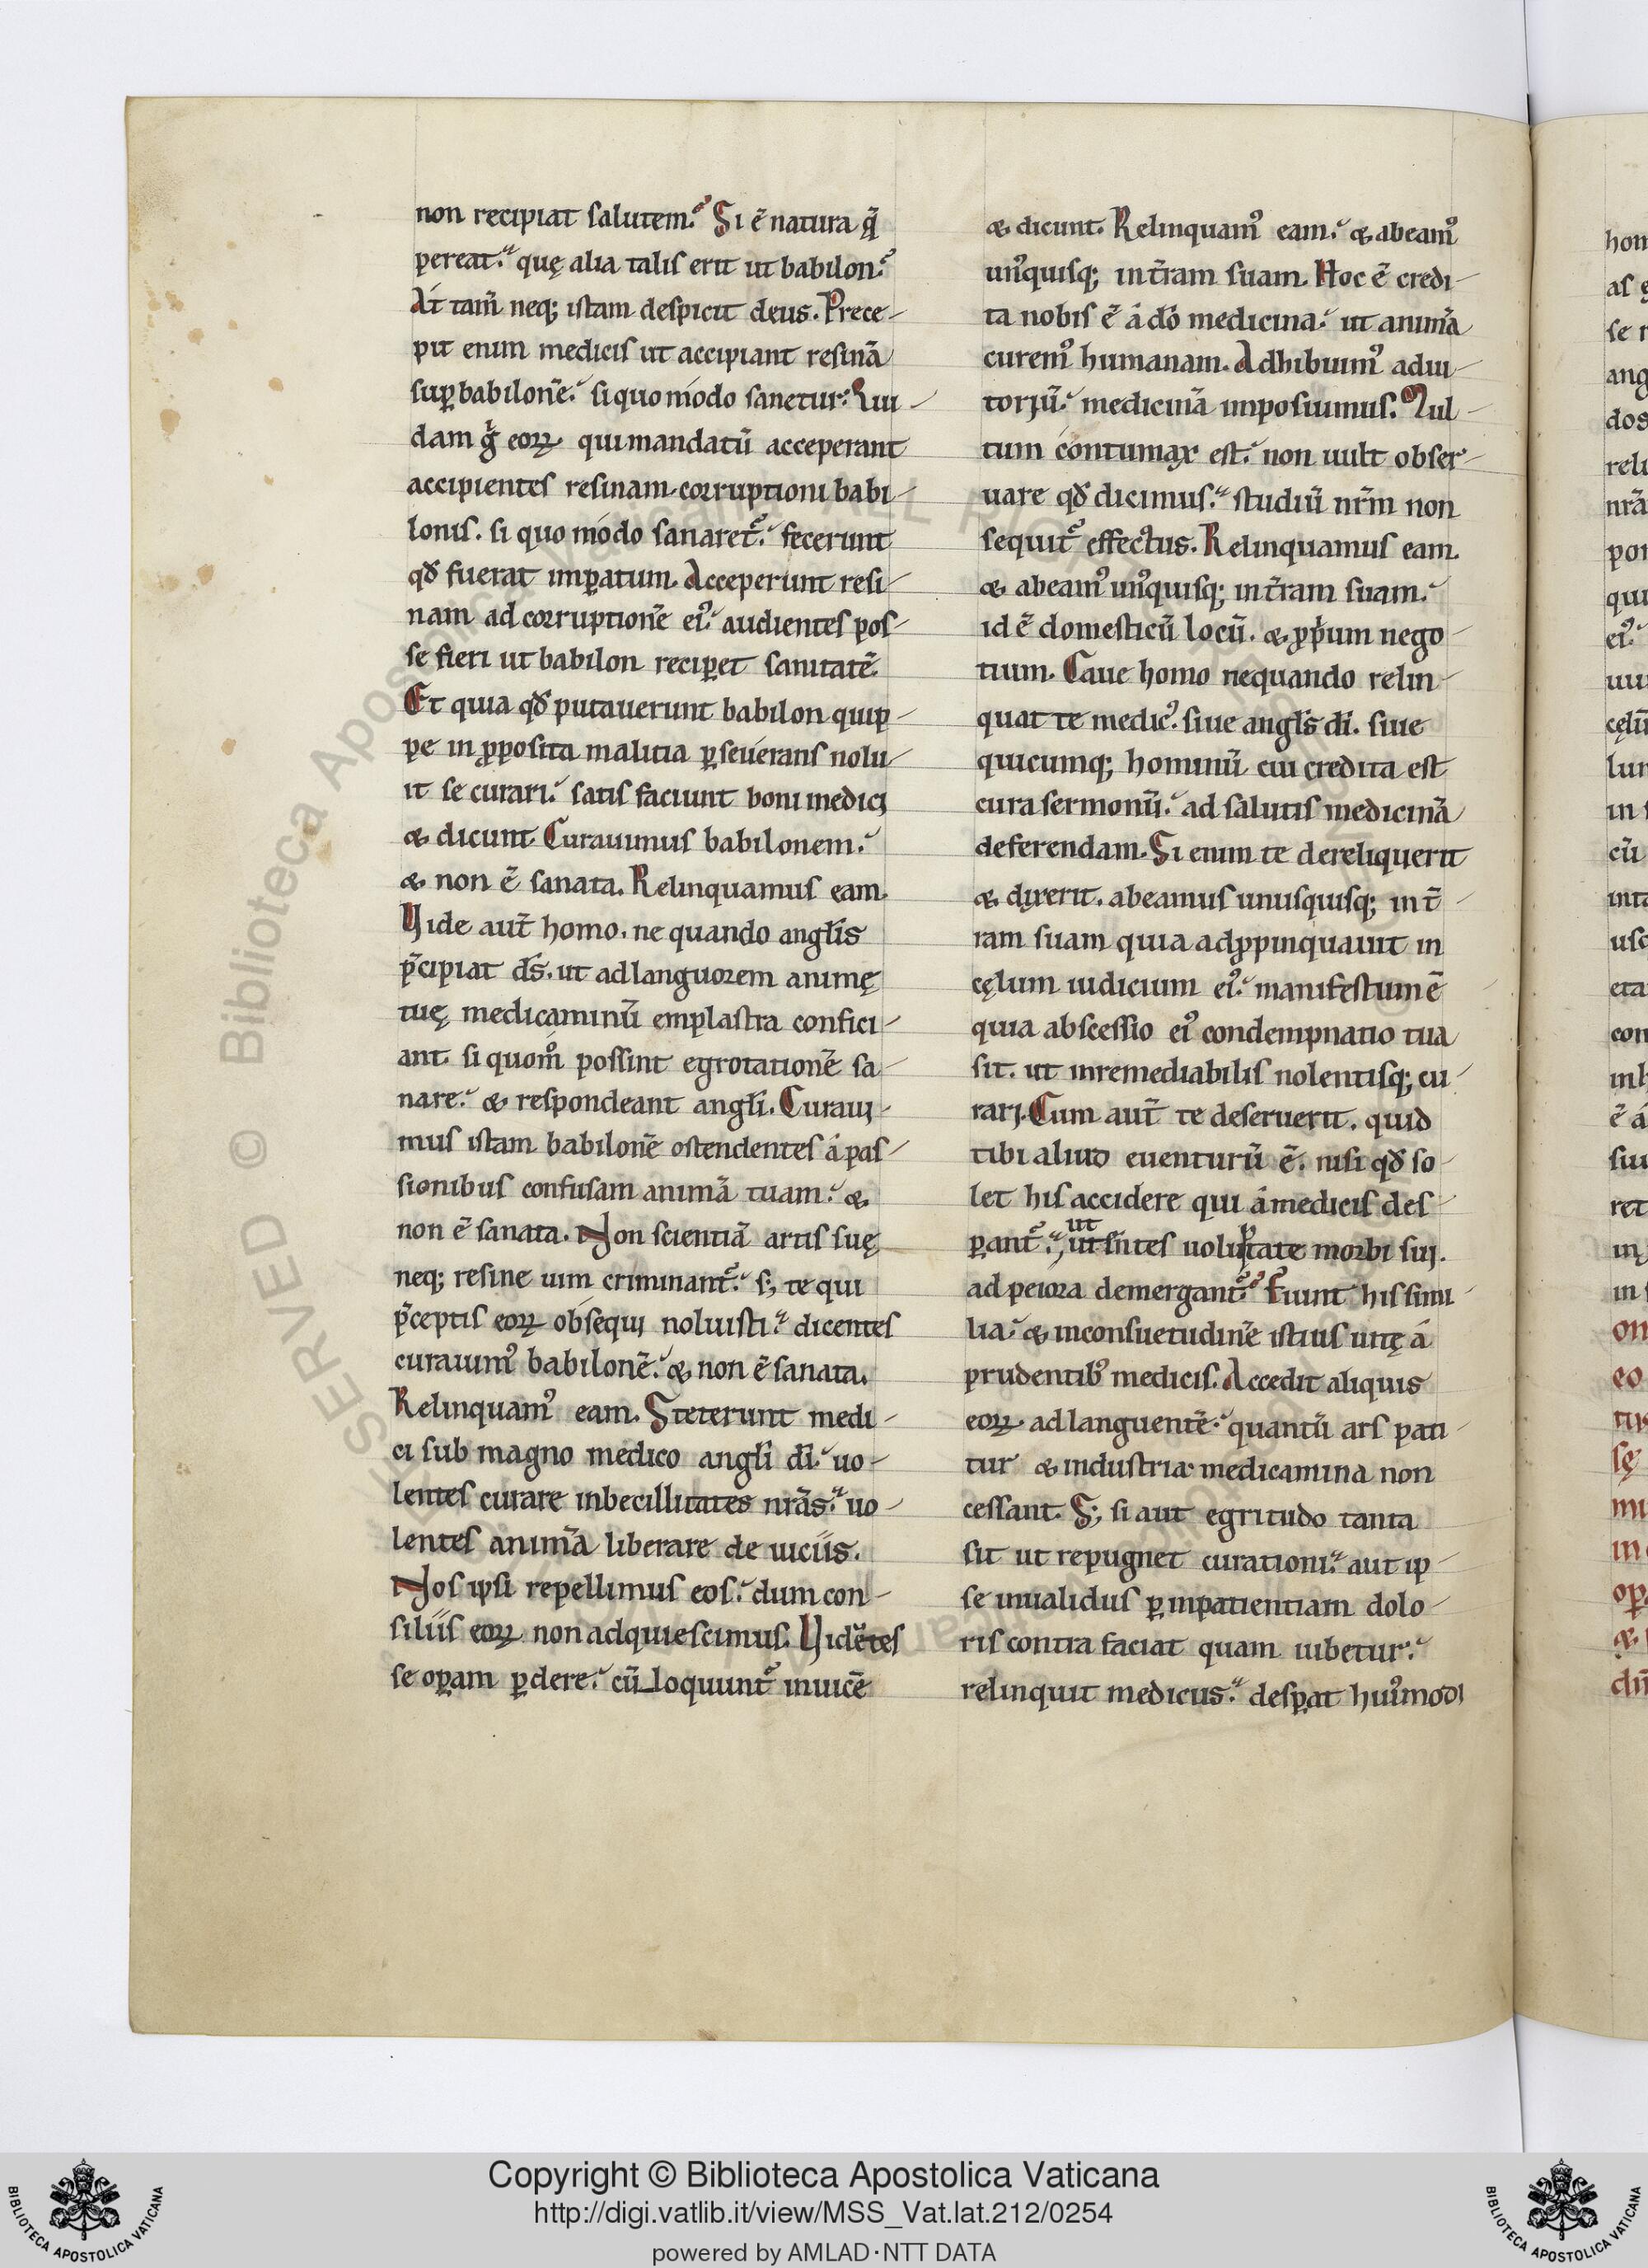 non recipiat salutem. Si ē natura q̄
pereat. quę alia talis erit ut babilon.
At tam̄ neq; istam despicit deus. Prece-
pit enim medicis ut accipiant resinā
suꝑ babilonē. si quo modo sanetur. Qui-
dam g̊ eoꝝ qui mandatū acceperant
accipientes resinam corruptioni babi-
lonis. si quo modo sanaret᷑. fecerunt
qđ fuerat imꝑatum. Acceperunt resi-
nam ad corruptionē ei᷒. audientes pos-
se fieri ut babilon reciꝑet sanitatē.
Et quia qđ putauerunt babilon quip-
pe in ꝓposita malitia ꝑseuerans nolu-
it se curari. satis faciunt boni medici
& dicunt. Curauimus babilonem.
& non ē sanata. Relinquamus eam.
Uide aut̄ homo. ne quando angl̄is
p̄cipiat dn̄s. ut ad languorem animę
tuę medicaminū emplastra confici-
ant. si quom̊ possint egrotationē sa-
nare. & respondeant angl̄i. Curaui-
mus istam babilonē ostendentes á pas-
sionibus confusam animā tuam. &
non ē sanata. Non scientiā artis suę
neq; resine uim criminant᷑. s; te qui
p̄ceptis eoꝝ obsequi noluisti. dicentes
curauim᷒ babilonē. & non ē sanata.
Relinquam᷒ eam. Steterunt medi-
ci sub magno medico angl̄i dī. uo-
lentes curare inbecillitates nr̄as. uo-
lentes animā liberare de uiciis.
Nos ipsi repellimus eos. dum con-
siliis eoꝝ non adquiescimus. Uidētes
se oꝑam ꝑdere. cū loquunt᷑ inuicē
& dicunt. Relinquam᷒ eam. & abeam᷒
un᷒quisq; in t̄ram suam. Hoc ē credi-
ta nobis ē á dō medicina. ut animā
curem᷒ humanam. Adhibuim᷒ adiu-
toriū. medicinā imposuimus. Mul-
tum contumax est. non uult obser-
uare qđ dicimus. studiū nr̄m non
sequit᷑ effectus. Relinquamus eam.
& abeam᷒ un᷒quisq; in t̄ram suam.
id ē domesticū locū. & ꝓp̄um nego-
tium. Caue homo nequando relin-
quat te medic᷒. siue angl̄s dī. siue
quicumq; hominū cui credita est
cura sermonū. ad salutis medicinā
deferendam. Si enim te dereliquerit
& dixerit. abeamus unusquisq; in t̄-
ram suam quia adꝓpinquauit in
cęlum iudicium ei᷒. manifestum ē
quia abscessio ei᷒ condempnatio tua
sit. ut inremediabilis nolentisq; cu-
rari. Cum aut̄ te deseruerit. quid
tibi aliud euenturū ē. nisi qđ so-
let his accidere qui á medicis des-
ꝑant᷑.
ad peiora demergant᷑. Fiunt his simi-
lia. & in consuetudinē istius uitę á
prudentib᷒ medicis. Accedit aliquis
eoꝝ ad languentē. quantū ars pati-
tur & industria medicamina non
cessant. S; si aut egritudo tanta
sit ut repugnet curationi. aut ip-
se inualidus ꝑ inpatientiam dolo-
ris contra faciat quam iubetur.
relinquit medicus. desꝑat hui᷒modi
Copyright © Biblioteca Apostolica Vaticana
http://digi.vatlib.it/view/MSS_Vat.lat.212/0254
powered by AMLAD·NTT DATA
BIBLIOTECA APOSTOLICA VATICANA
BIBLIOTECA APOSTOLICA VATICANA